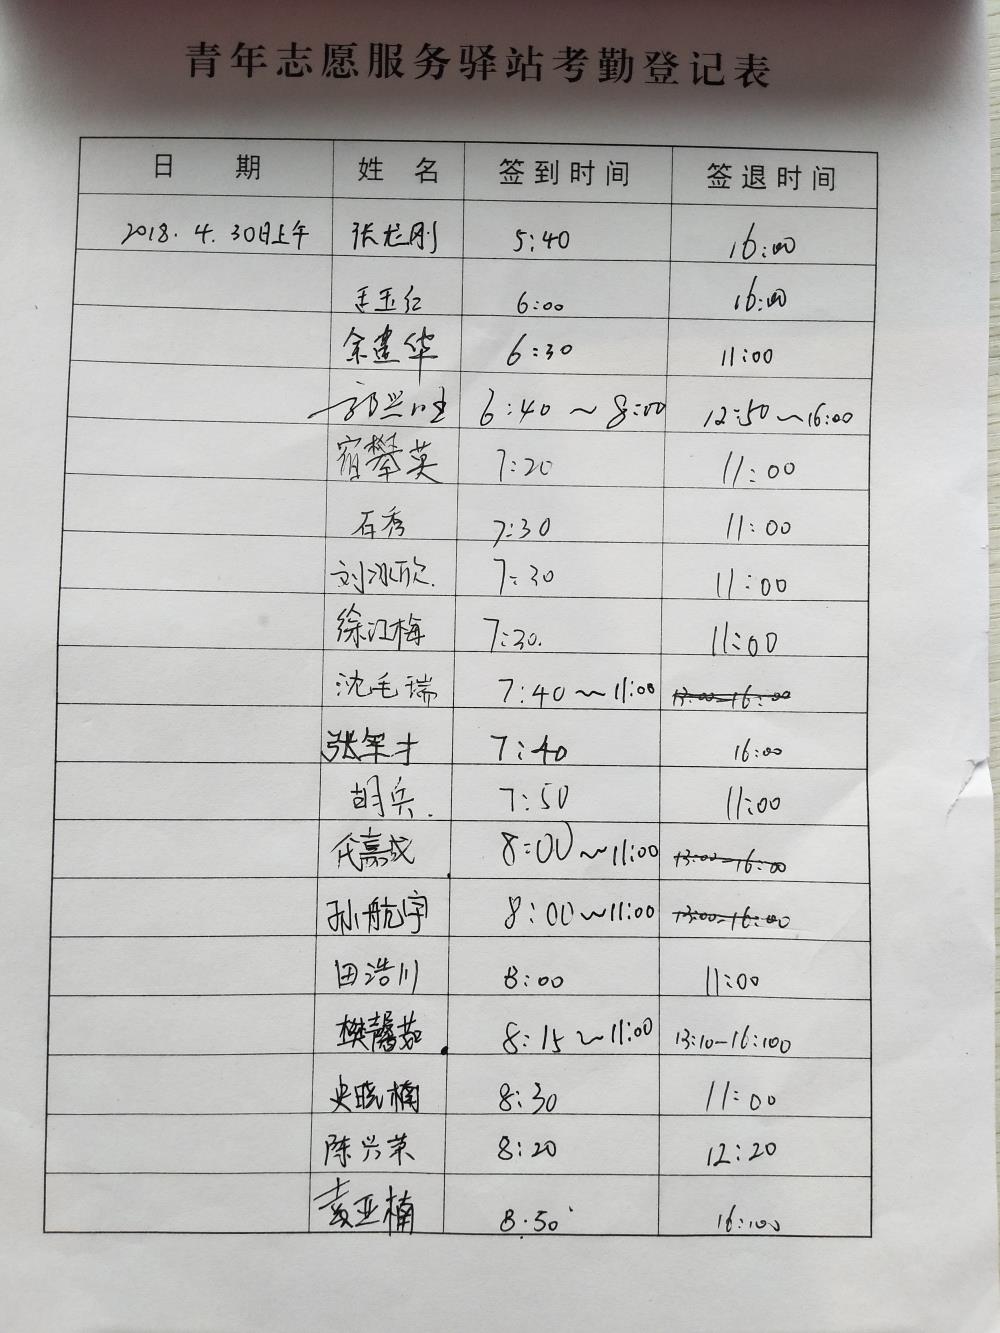 青年志愿服务驿站考勤登记表
日 期 姓 名 签到时间 签退时间
2018.4.30日上午 张龙刚 5:40 16:00
王玉红 6:00 16:00
余建华 6:30 11:00
郭兴旺 6:40~8:00 12:50~16:00
宿攀英 7:20 11:00
石秀 7:30 11:00
刘冰欣. 7:30 11:00
徐江梅 7:30. 11:00
沈毛瑞 7:40~11:00 13:00-16:00
张军才 7:40 16:00
胡兵. 7:50 11:00
代嘉成 8:00~11:00 13:00-16:00
孙航宇 8:00~11:00 13:00-16:00
田浩川 8:00 11:00
樊馨茹 8:15~11:00 13:10-16:00
史晓楠 8:30 11:00
陈兴荣 8:20 12:20
袁亚楠 8.50 16:00